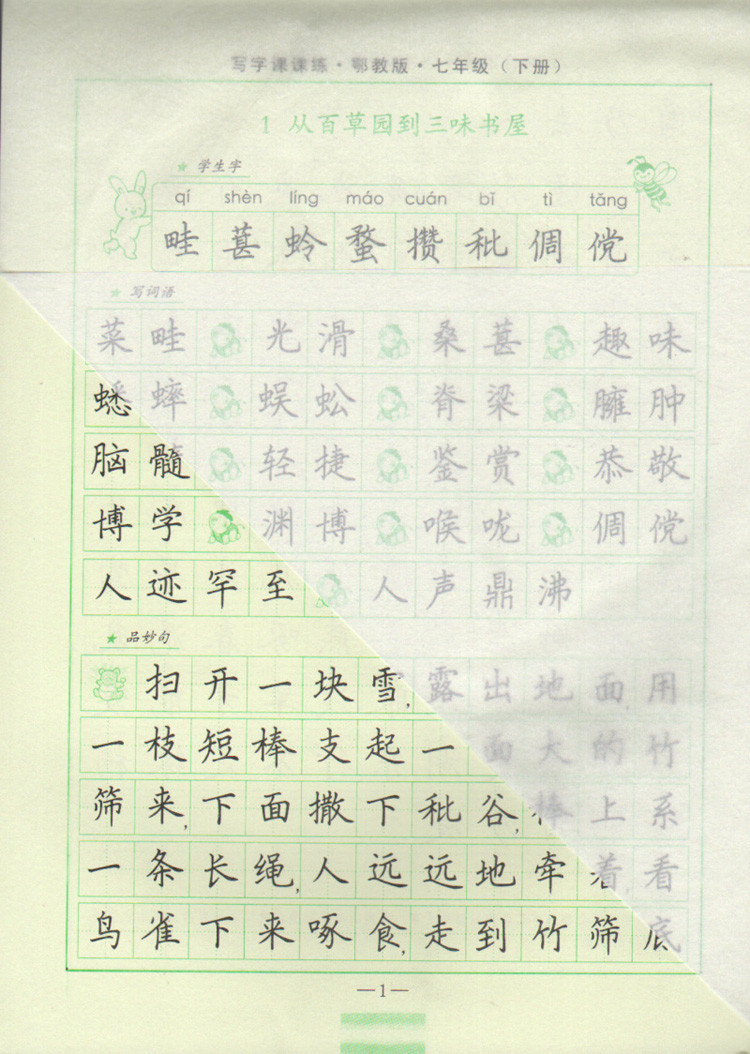 写字课课练·鄂教版·七年级（下册）
1 从百草园到三味书屋
★ 学生字
qí shèn líng máo cuán bǐ tì tǎng
畦 葚 蛉 蝥 攒 秕 倜 傥
★ 写词语
菜畦 光滑 桑葚 趣味
蟋蟀 蜈蚣 脊梁 臃肿
脑髓 轻捷 鉴赏 恭敬
博学 渊博 喉咙 倜傥
人迹罕至 人声鼎沸
★ 品妙句
扫开一块雪,露出地面,用
一枝短棒支起一面大的竹
筛来,下面撒下秕谷,棒上系
一条长绳,人远远地牵着,看
鸟雀下来啄食,走到竹筛底
—1—